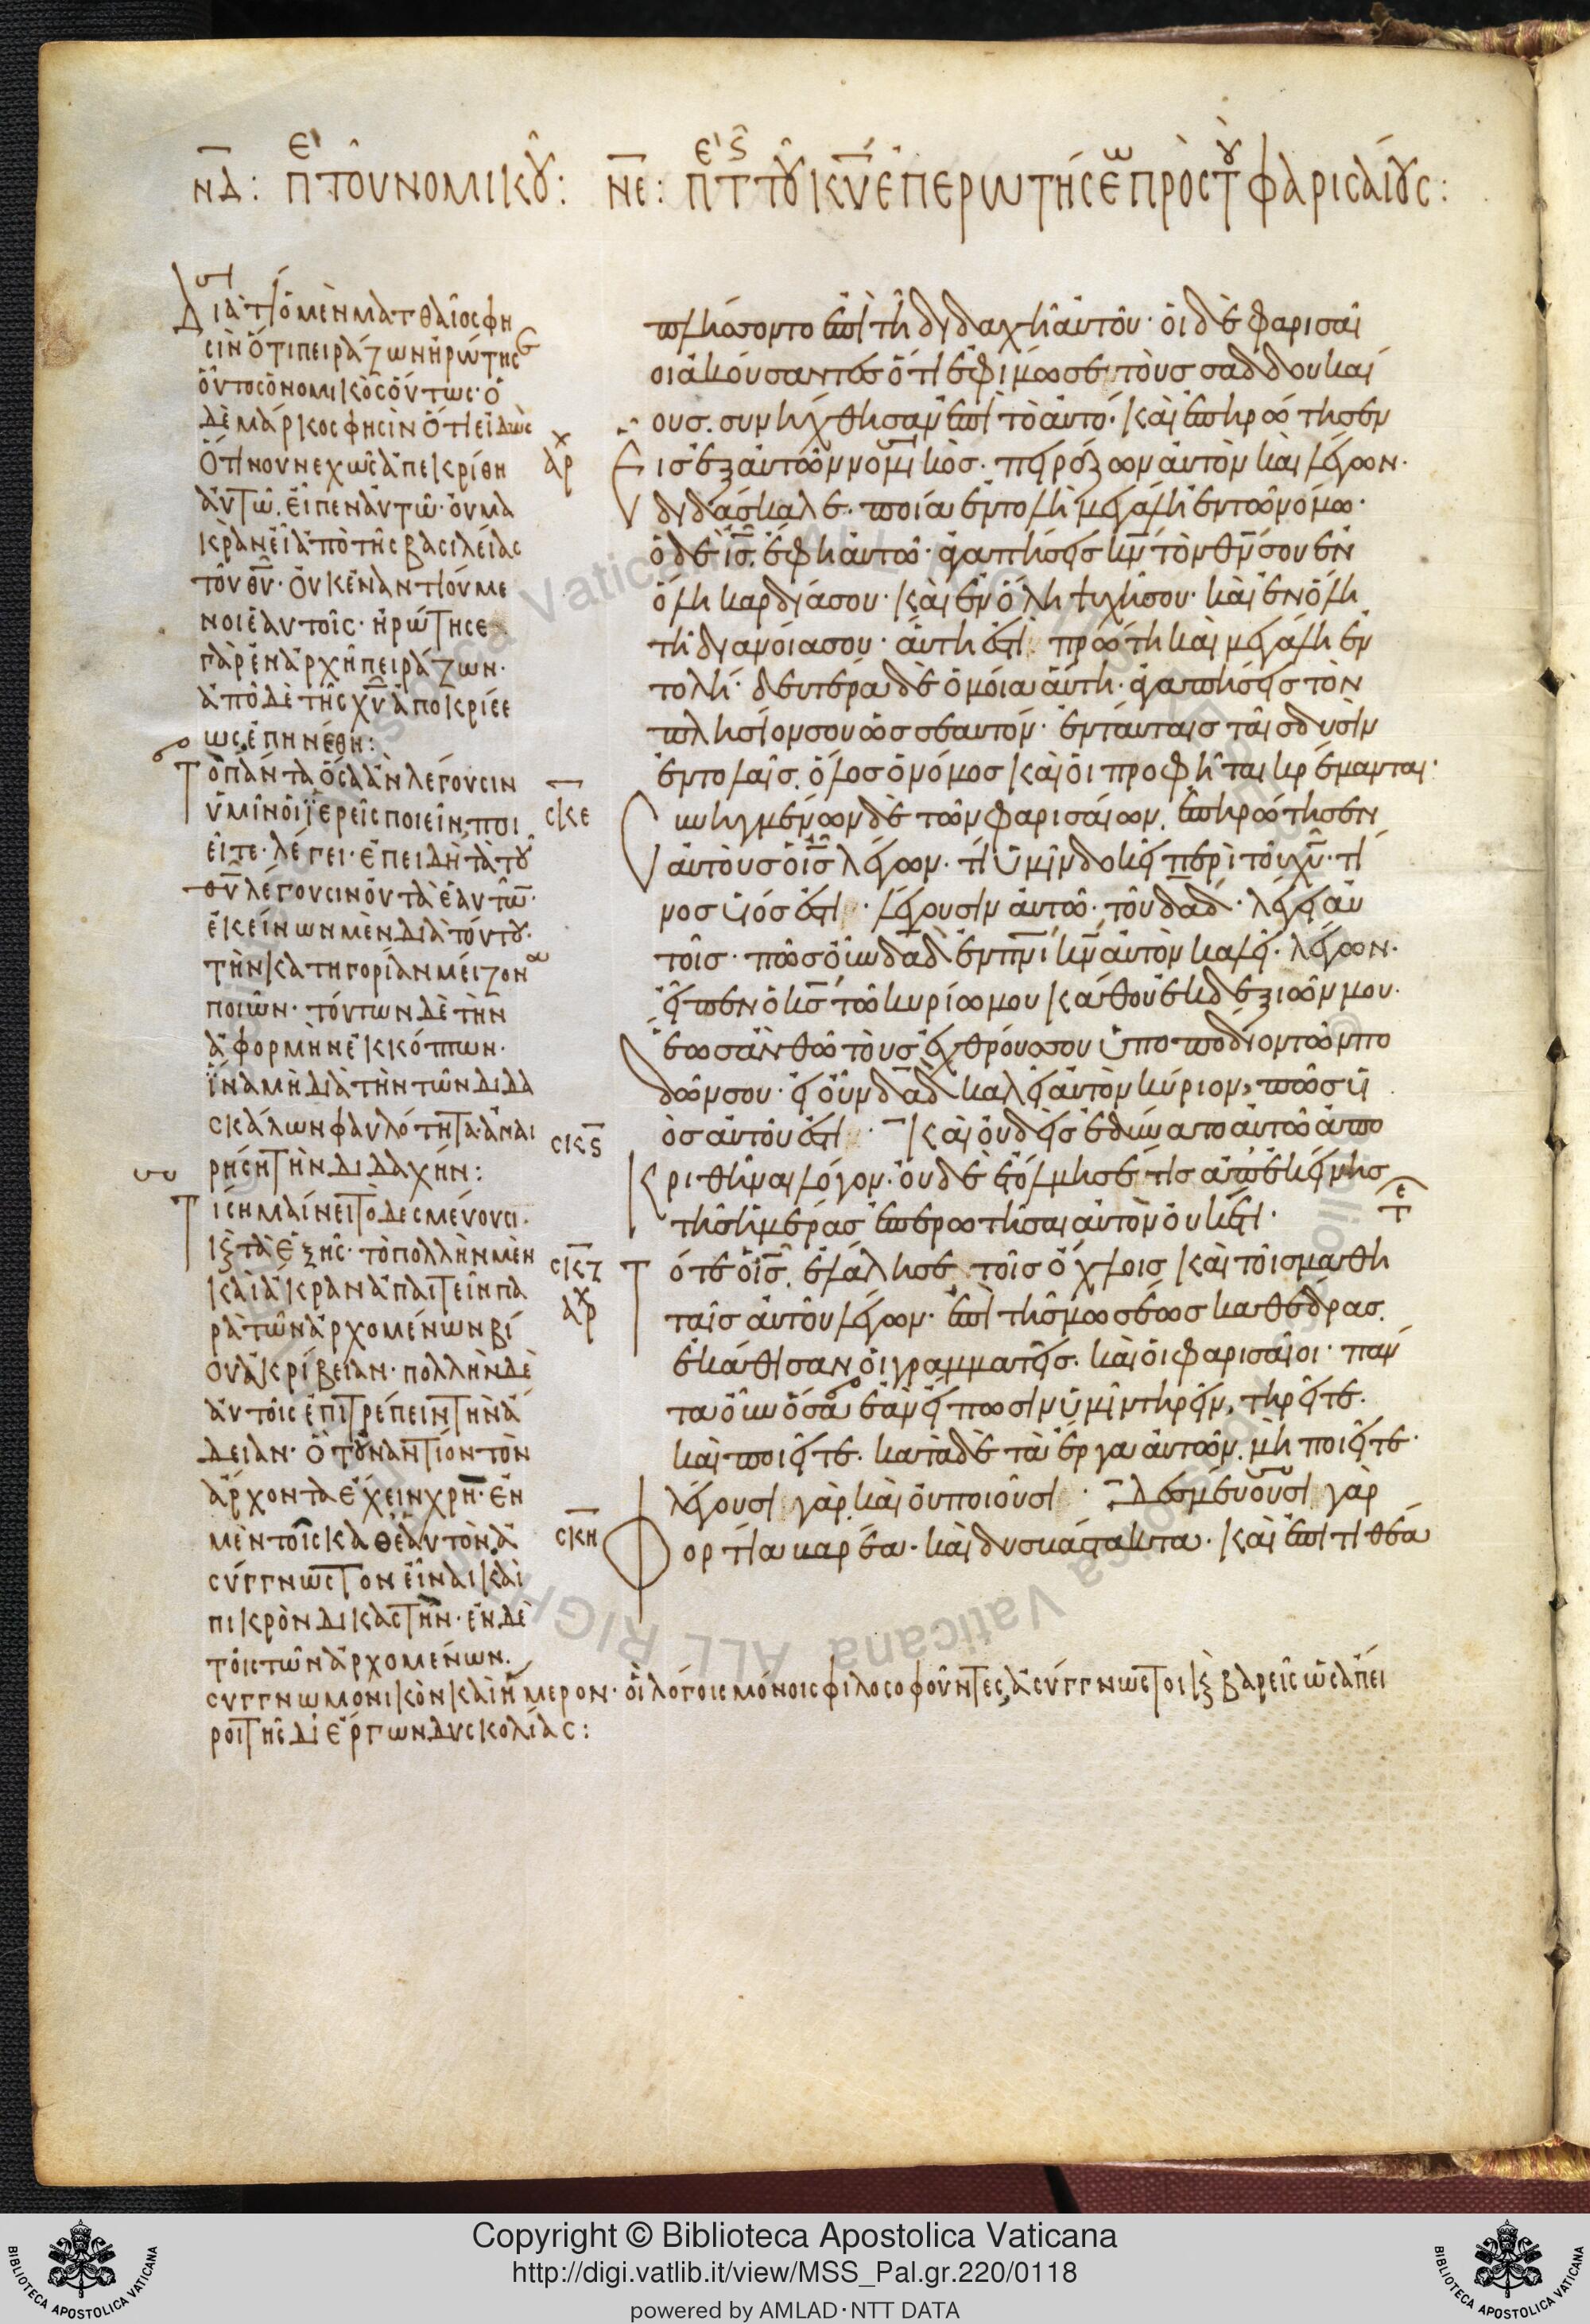 ΝΔ: ΠΕΡΙ ΤΟΥ ΝΟΜΙΚΟΥ: ΝΕ: ΠΕΡΙ ΤΗΣ ΤΟΥ ΚΥ ΕΠΕΡΩΤΗΣΕΩΣ ΠΡΟΣ ΤΟΥΣ ΦΑΡΙΣΑΙΟΥΣ:
Διὰ τί ὁ μὲν ματθαῖος φη
σὶν ὅτι πειράζων ἠρώτησε
οὗτος ὁ νομικὸς ὄντως· ὁ
δὲ μάρκος φησὶν ὅτι εἰδὼς
ὅτι νουνεχῶς ἀπεκρίθη
αὐτῶ. εἶπεν αὐτῶ· οὐ μα
κρὰν εἶ ἀπὸ τῆς βασιλείας
τοῦ θῦ· οὐκ ἐναντιούμε
νοι ἑαυτοῖς· ἠρώτησε
γὰρ ἐν ἀρχῆ πειράζων·
ἀπὸ δὲ τῆς χῦ ἀποκρίσε
ως ἐπηνέθη:
Τὸ πάντα ὅσα ἂν λέγουσιν
ὑμῖν οἱ ἱερεῖς ποιεῖν, ποι
εῖτε· λέγει· ἐπειδὴ τὰ τοῦ
θῦ λέγουσιν οὐ τὰ ἑαυτῶν·
ἐκείνων μὲν διὰ τούτου
τὴν κατηγορίαν μείζονα
ποιῶν· τούτων δὲ τὴν
ἀφορμὴν ἐκκόπτων·
ἵνα μὴ διὰ τὴν τῶν διδα
σκάλων φαυλότητα ἀναι
ρήση τὴν διδαχήν:
Τί σημαίνει τὸ δεσμεύουσι
κ τὰ ἑξῆς· τὸ πολλὴν μὲν
καὶ ἄκραν ἀπαιτεῖν πα
ρὰ τῶν ἀρχομένων βί
ου ἀκρίβειαν· πολλὴν δὲ
αὐτοῖς ἐπιτρέπειν τὴν ἄ
δειαν· ὃ τοὐναντίον τὸν
ἄρχοντα ἔχειν χρή· ἐν
μὲν τοῖς καθ' ἑαυτὸν ἀ
σύγγνωστον εἶναι καὶ
πικρὸν δικαστήν· ἐν δὲ
τοῖς τῶν ἀρχομένων.
συγγνωμονικὸν καὶ ἥμερον· οἱ λόγοις μόνοις φιλοσοφοῦντες, ἀσύγγνωστοι κ βαρεῖς ὡς ἄπει
ροι τῆς δι' ἔργων δυσκολίας:
ΣΚΕ
ΣΚϚ
ΣΚΖ
ΑΡΧ
ΣΚΗ
πλήσσοντο ἐπὶ τῆ διδαχῆ αὐτοῦ· οἱ δὲ φαρισαῖ
οι ἀκούσαντες ὅτι ἐφίμωσε τοὺς σαδδουκαί
ους. συνήχθησαν ἐπὶ τὸ αὐτό· καὶ ἐπηρώτησεν
εἷς ἐξ αὐτῶν νομικὸς. πειράζων αὐτὸν καὶ λέγων·
διδάσκαλε· ποία ἐντολὴ μεγάλη ἐν τῶ νόμω·
ὁ δὲ ις. ἔφη αὐτῶ· ἀγαπήσεις κν τὸν θν σου ἐν
ὅλη καρδία σου· καὶ ἐν ὅλη ψυχῆ σου· καὶ ἐν ὅλη
τῆ διανοία σου· αὕτη ἐστὶ πρώτη καὶ μεγάλη ἐν
τολή· δευτέρα δὲ ὁμοία αὕτη· ἀγαπήσεις τὸν
πλησίον σου ὡς σεαυτόν· ἐν ταύταις ταῖς δυσὶν
ἐντολαῖς. ὅλος ὁ νόμος καὶ οἱ προφῆται κρέμανται·
συνηγμένων δὲ τῶν φαρισαίων. ἐπηρώτησεν
αὐτοὺς ὁ ις λέγων· τί ὑμῖν δοκεῖ περὶ τοῦ χυ· τί
νος υἱός ἐστι· λέγουσιν αὐτῶ· τοῦ δαδ· λέγει αὐ
τοῖς· πῶς οὖν δαδ ἐν πνι κν αὐτὸν καλεῖ· λέγων·
εἶπεν ὁ κς τῶ κυρίω μου κάθου ἐκ δεξιῶν μου·
ἕως ἂν θῶ τοὺς ἐχθρούς σου ὑποπόδιον τῶν πο
δῶν σου· εἰ οὖν δαδ καλεῖ αὐτὸν κύριον, πῶς υἱ
ὸς αὐτοῦ ἐστι· καὶ οὐδεὶς ἐδύνατο αὐτῶ ἀπο
κριθῆναι λόγον· οὐδὲ ἐτόλμησέ τις ἀπ' ἐκείνης
τῆς ἡμέρας ἐπερωτῆσαι αὐτὸν οὐκέτι·
Τότε ὁ ις. ἐλάλησε τοῖς ὄχλοις καὶ τοῖς μαθη
ταῖς αὐτοῦ λέγων· ἐπὶ τῆς μωσέως καθέδρας.
ἐκάθισαν οἱ γραμματεῖς. καὶ οἱ φαρισαῖοι· πάν
τα οὖν ὅσα ἐὰν εἴπωσιν ὑμῖν τηρεῖν, τηρεῖτε.
καὶ ποιεῖτε. κατὰ δὲ τὰ ἔργα αὐτῶν. μὴ ποιεῖτε·
λέγουσι γὰρ καὶ οὐ ποιοῦσι· δεσμεύουσι γὰρ
φορτία βαρέα· καὶ δυσβάστακτα· καὶ ἐπιτιθέα
Copyright © Biblioteca Apostolica Vaticana
http://digi.vatlib.it/view/MSS_Pal.gr.220/0118
powered by AMLAD·NTT DATA